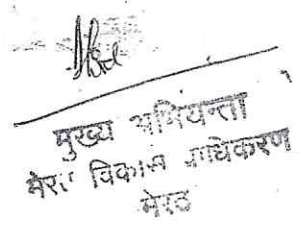 मुख्य अभियन्ता
मेरठ विकास प्राधिकरण
मेरठ